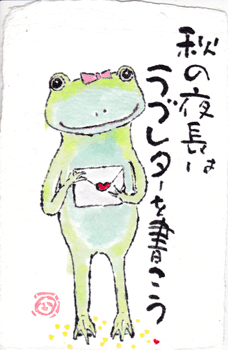 秋の夜長は
ラブレターを書こう